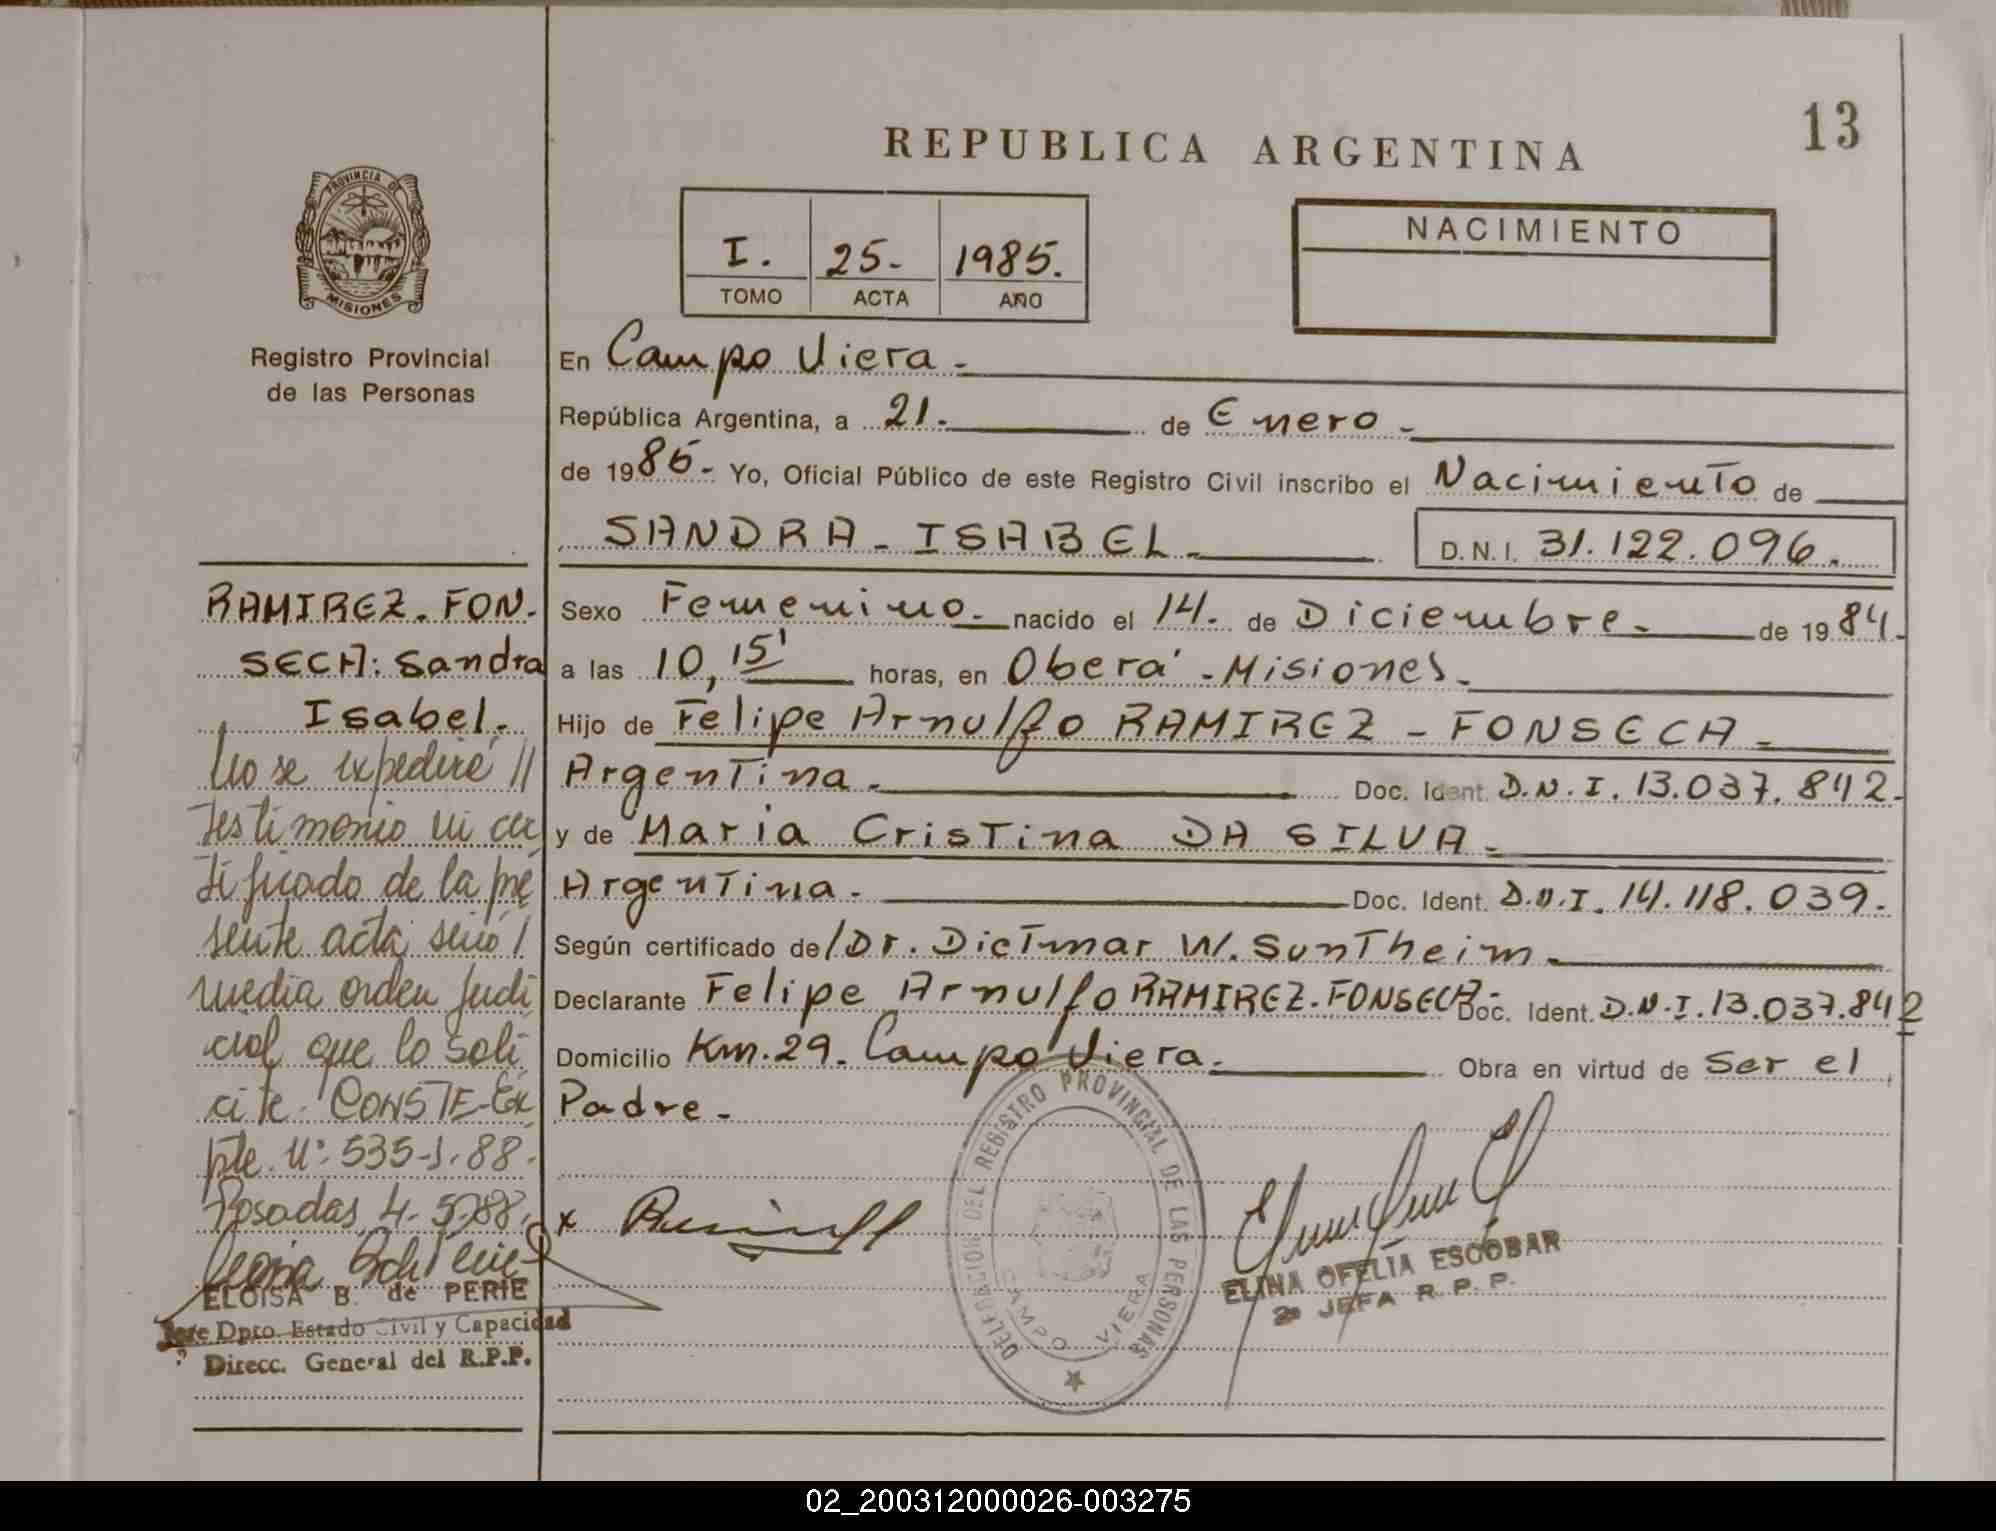 13
REPUBLICA ARGENTINA
PROVINCIA DE
MISIONES
Registro Provincial
de las Personas
I. 25- 1985.
TOMO ACTA AÑO
NACIMIENTO
En Campo Viera.-
República Argentina, a 21.- de Enero.-
de 1985.- Yo, Oficial Público de este Registro Civil inscribo el Nacimiento de
SANDRA - ISABEL.- D.N.I. 31.122.096.
RAMIREZ. FON-
SECA: Sandra
Isabel.-
Sexo Femenino.- nacido el 14. de Diciembre.- de 1984.-
a las 10,15' horas, en Oberá - Misiones.-
Hijo de Felipe Arnulfo RAMIREZ - FONSECA.-
Argentina.- Doc. Ident. D.N.I. 13.037.842.-
y de Maria Cristina DA SILVA.-
Argentina.- Doc. Ident. D.N.I. 14.118.039.-
Según certificado de/ Dr. Dietmar W. Suntheim.-
Declarante Felipe Arnulfo RAMIREZ-FONSECA.- Doc. Ident. D.N.I. 13.037.842
Domicilio Km. 29. Campo Viera.- Obra en virtud de Ser el
Padre.-
No se expedirá //
testimonio ni cer
tificado de la pre
sente acta sinó /
media orden judi
cial que lo soli
cite. CONSTE-Ex
pte. Nº 535-J-88.
Posadas, 4-5-88.
ELOISA B. de PERIE
Jefe Dpto. Estado Civil y Capacidad
Direcc. General del R.P.P.
x
DELEGACION DEL REGISTRO PROVINCIAL DE LAS PERSONAS
CAMPO VIERA
ELINA OFELIA ESCOBAR
2ª JEFA R. P. P.
02_200312000026-003275